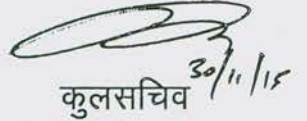 30/11/15
कुलसचिव